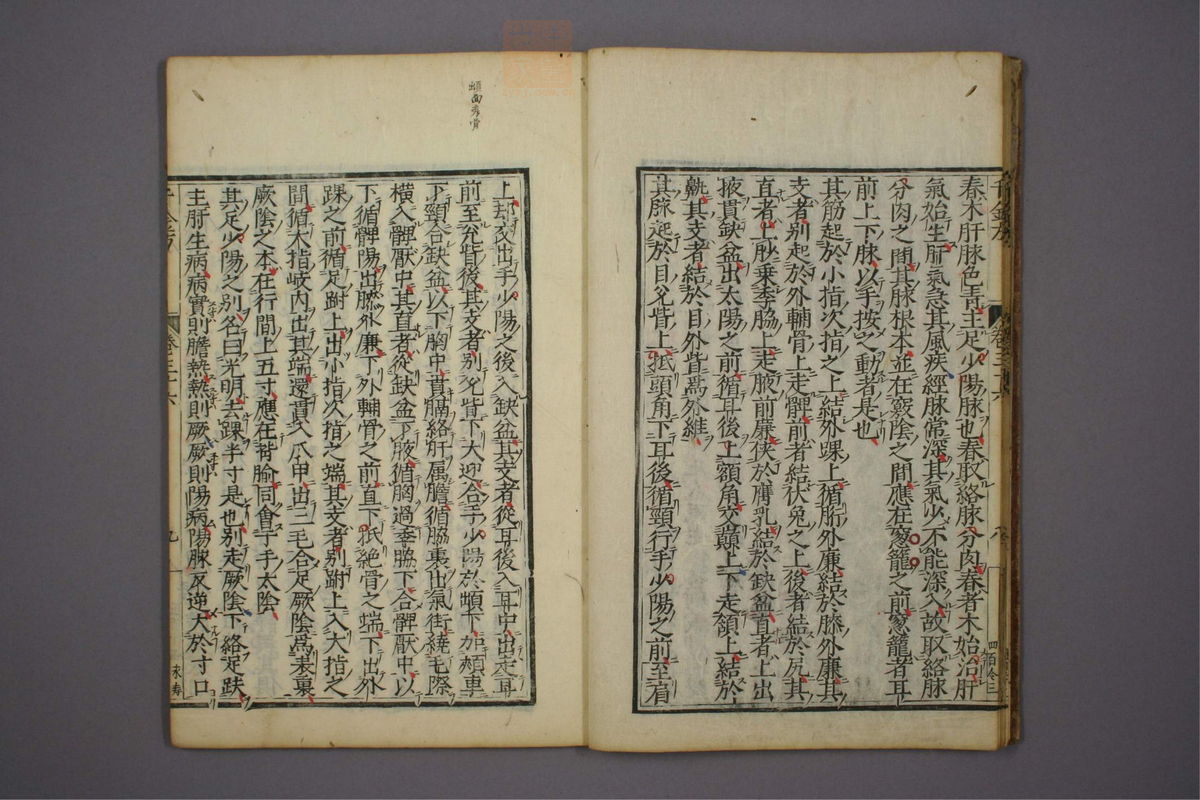 春木肝脉色青主足少陽脉也春取絡脉分肉春者木始治肝
氣始生肝氣急其風疾經脉常深其氣少不能深入故取絡脉
分肉之間其脉根本並在竅陰之間應在窓籠之前窓籠者耳
前上下脉以手按之動者是也
其筋起於小指次指之上結外踝上循胻外廉結於膝外廉其
支者別起於外輔骨上走髀前者結伏兔之上後者結於尻其
直者上䏚乗季脇上走腋前廉俠於膺乳結於缺盆直者上出
掖貫缺盆出太陽之前循耳後上額角交巔上下走頷上結於
鼽其支者結於目外眥爲外維
其脉起於目兊眥上抵頭角下耳後循頸行手少陽之前至肩
上却交出手少陽之後入缺盆其支者從耳後入耳中出走耳
前至兊眥後其支者別兊眥下大迎合手少陽於䪼下加頰車
下頸合缺盆以下胸中貫膈絡肝属膽循脇裏出氣街繞毛際
横入髀厭中其直者從缺盆下腋循胸過季脇下合髀厭中以
下循髀陽出膝外廉下外輔骨之前直下抵絶骨之端下出外
踝之前循足跗上出小指次指之端其支者別跗上入大指之
間循大指岐内出其端還貫入爪甲出三毛合足厥陰爲表裏
厥陰之本在行間上五寸應在背腧同會于手太陰
其足少陽之別名曰光明去踝半寸是也別走厥陰下絡足趺
主肝生病病實則膽熱熱則厥厥則陽病陽脉反逆大於寸口
卷三十六
九